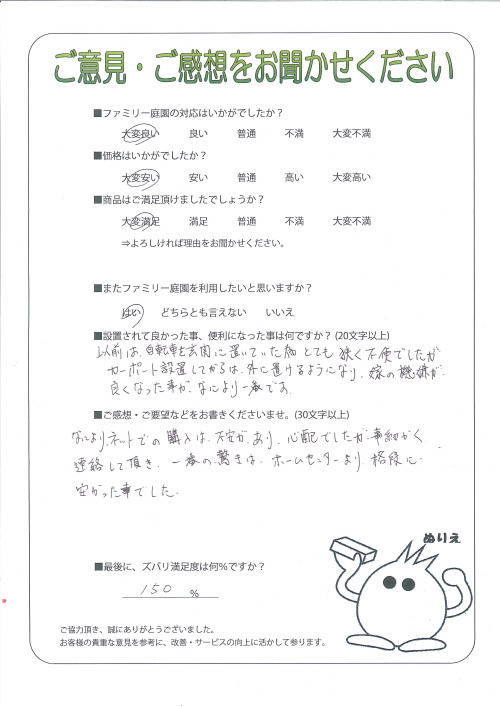 ご意見・ご感想をお聞かせください
■ファミリー庭園の対応はいかがでしたか？
大変良い 良い 普通 不満 大変不満
■価格はいかがでしたか？
大変安い 安い 普通 高い 大変高い
■商品はご満足頂けましたでしょうか？
大変満足 満足 普通 不満 大変不満
⇒よろしければ理由をお聞かせください。
■またファミリー庭園を利用したいと思いますか？
はい どちらとも言えない いいえ
■設置されて良かった事、便利になった事は何ですか？(20文字以上)
以前は、自転車を玄関に置いていた為とても狭く不便でしたが
カーポート設置してからは、外に置けるようになり、嫁の機嫌が
良くなった事が、なにより一番です。
■ご感想・ご要望などをお書きくださいませ。(30文字以上)
なにより、ネットでの購入は、不安があり、心配でしたが事細かく
連絡して頂き、一番の驚きは、ホームセンターより、格段に
安かった事でした。
ぬりえ
■最後に、ズバリ満足度は何％ですか？
150 ％
ご協力頂き、誠にありがとうございました。
お客様の貴重な意見を参考に、改善・サービスの向上に活かして参ります。